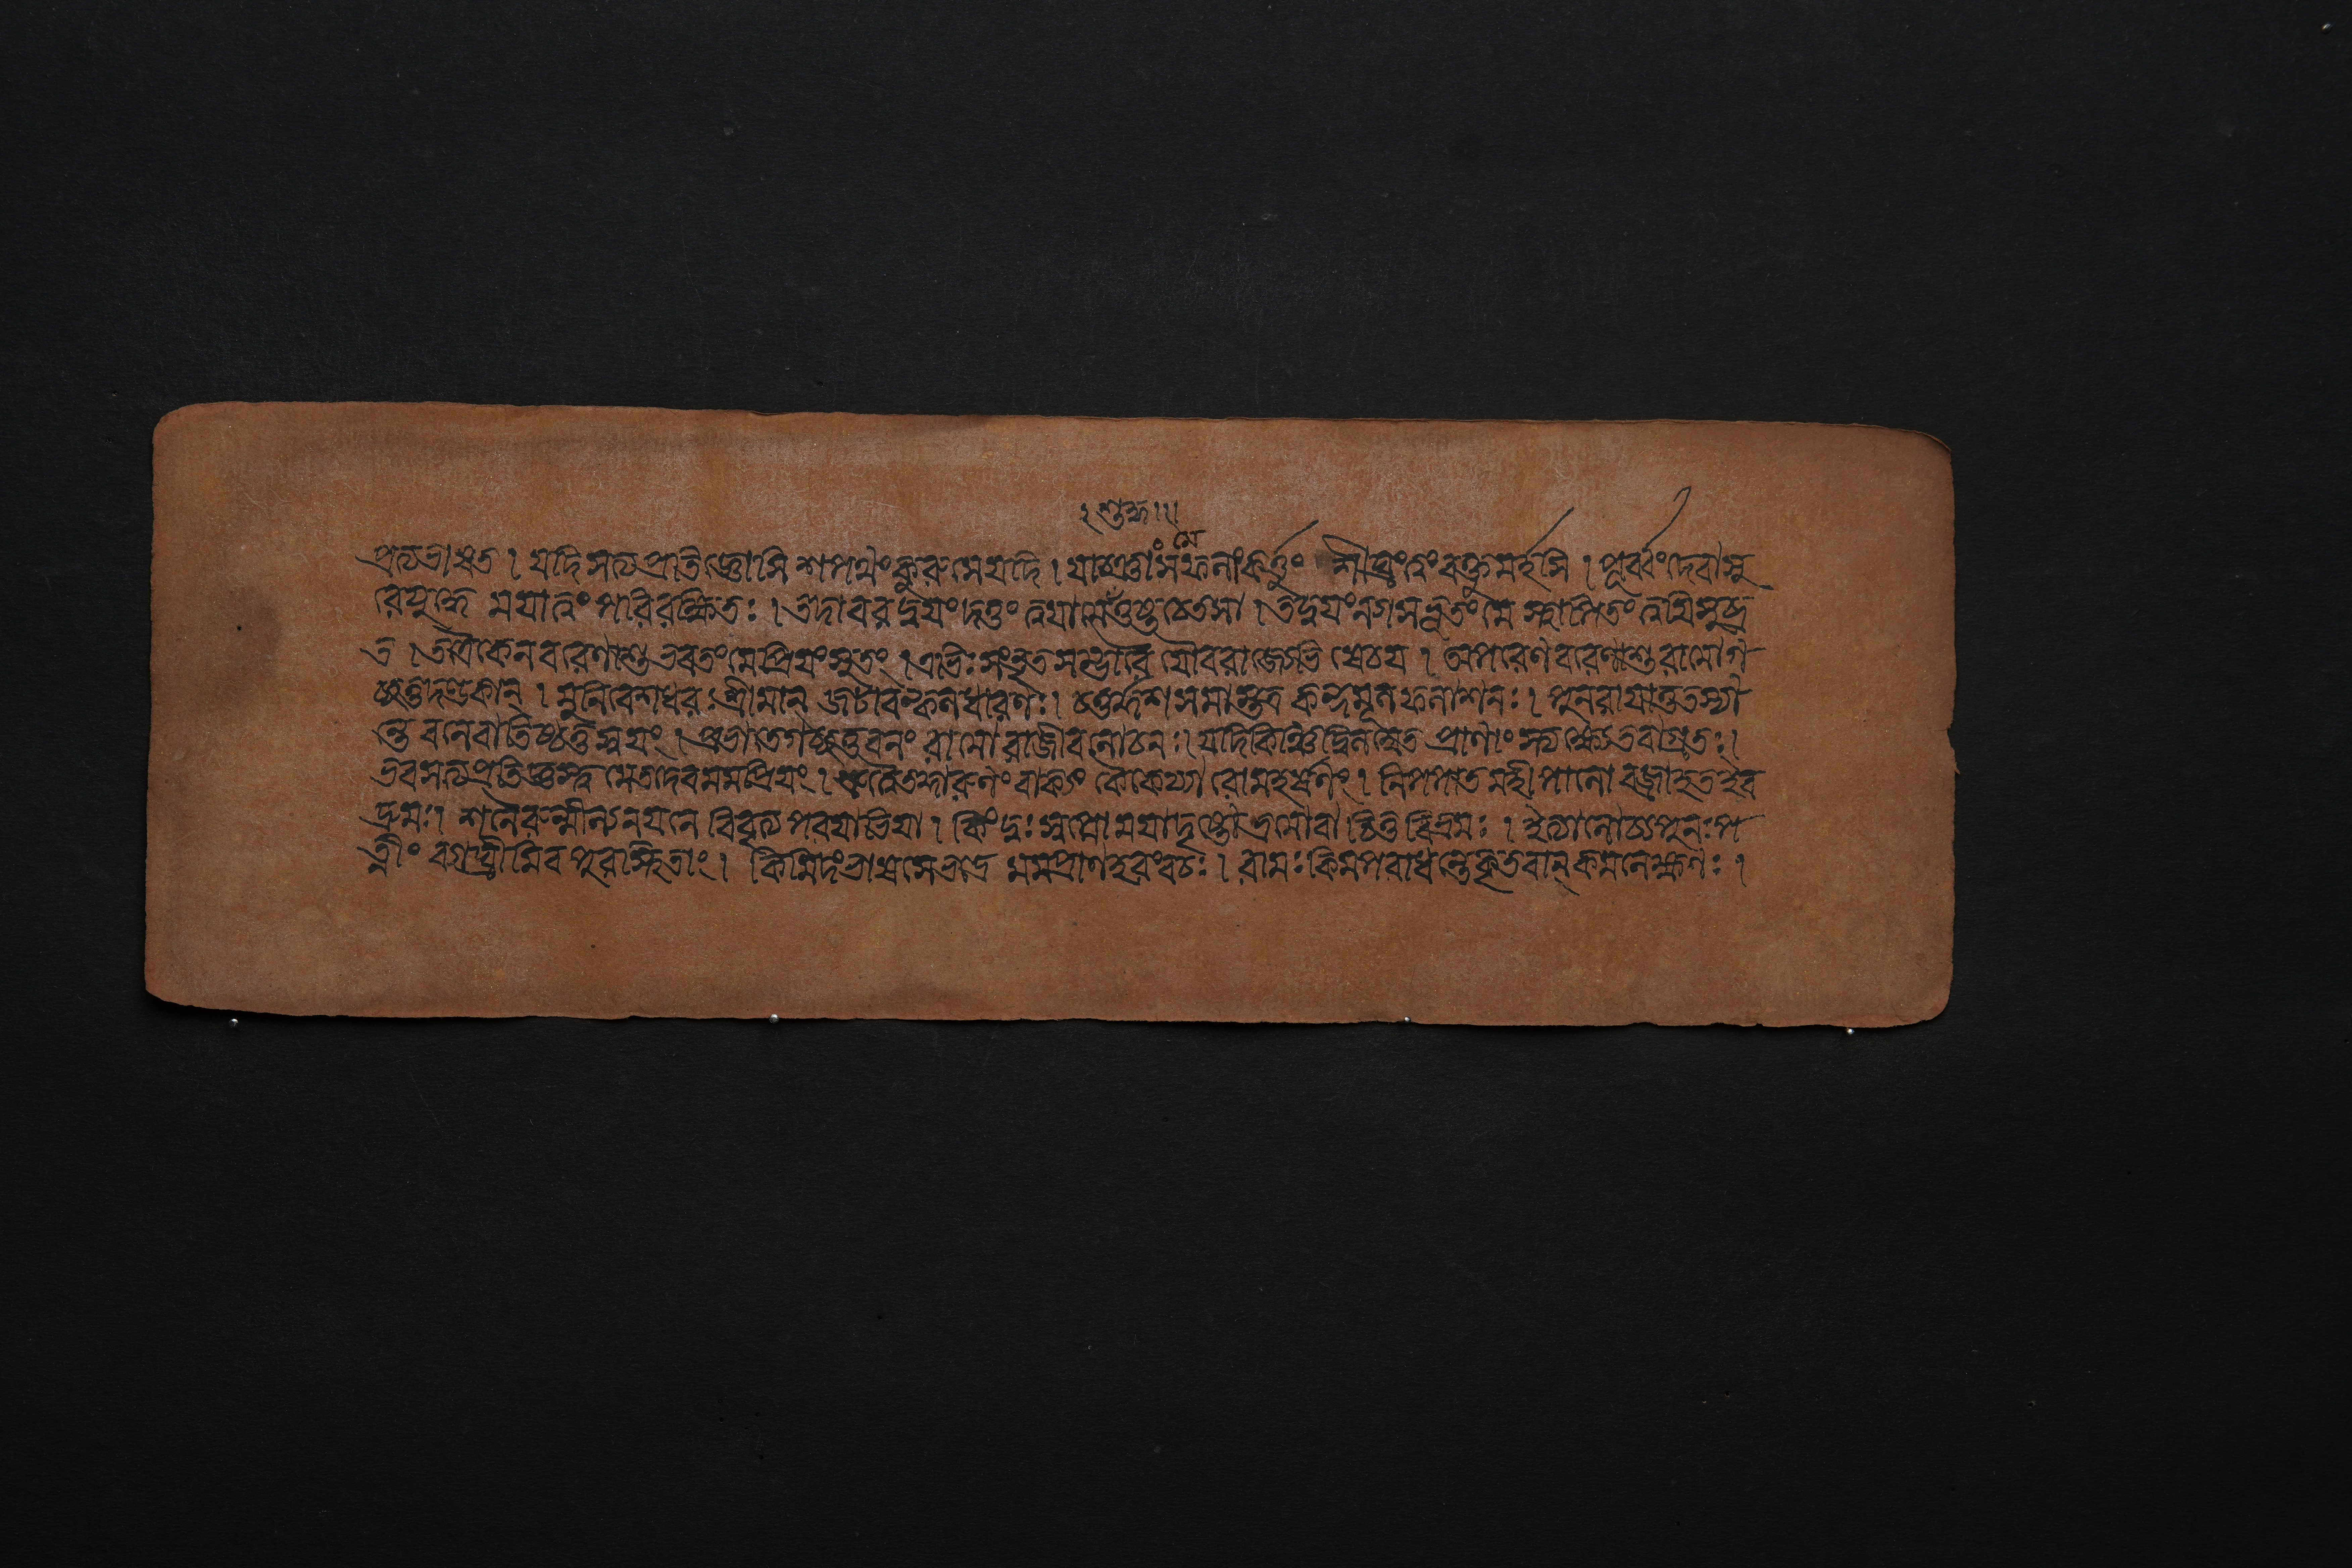 ২ শুদ্ধ।।।
প্রত্যভাষত । যদি সত্যপ্রতিজ্ঞোসি শপথং কুরুষেযদি । যাচ্ঞাং মেসফলাং কর্ত্তুং শীঘ্রং ত্বং বক্তুমর্হসি । পূর্ব্বং দেবাসু
রেযুদ্ধে ময়াত্বং পরিরক্ষিতঃ । তদা বরদ্বয়ং দত্তং ত্বয়া মে তুষ্টচেতসা । তদ্দ্বয়ং ন্যাসভূতং মে স্থাপিতং ত্বয়িসুব্র
ত । তত্রৈকেন বরেণাশু ভরতং মেপ্রিয়ং সুতং । এভিঃ সংভৃতসম্ভারৈ যৌবরাজ্যেঽভিষেচয় । অপরেণ বরেণাশু রামোগ
চ্ছতু দণ্ডকান্ । মুনিবেশধরঃ শ্রীমান্ জটাবল্কলধারণঃ । চতুর্দ্দশ সমাস্তত্র কন্দমূলফলাশনঃ । পুনরায়াতু তস্যা
ন্তে বনেবা তিষ্ঠতু স্বয়ং । প্রভাতেগচ্ছতু বনং রামো রাজীবলোচনঃ । যদিকিঞ্চিদ্বিলম্বেত প্রাণাংস্ত্যক্ষ্যেতবাগ্রতঃ ।
ভবসত্যপ্রতিজ্ঞস্ত্বমেতদেবমমপ্রিয়ং । শ্রুত্বৈতদ্দারুণং বাক্যং কৈকেয্যা রোমহর্ষণং । নিপপাত মহীপালো বজ্রাহতইব
দ্রুমঃ । শনৈরুন্মীল্য নয়নে বিমৃজ্য পরয়াভিয়া । কিং দুঃস্বপ্নো ময়াদৃষ্টো ভ্রমোবা চিত্তবিভ্রমঃ । ইত্যালোচ্য পুনঃ প
ত্নীং ব্যাঘ্রীমিব পুরঃস্থিতাং । কিমিদং ভাষসে ভদ্রে মমপ্রাণহরং বচঃ । রামঃ কিমপরাধন্তে কৃতবান্ কমলেক্ষণঃ ।